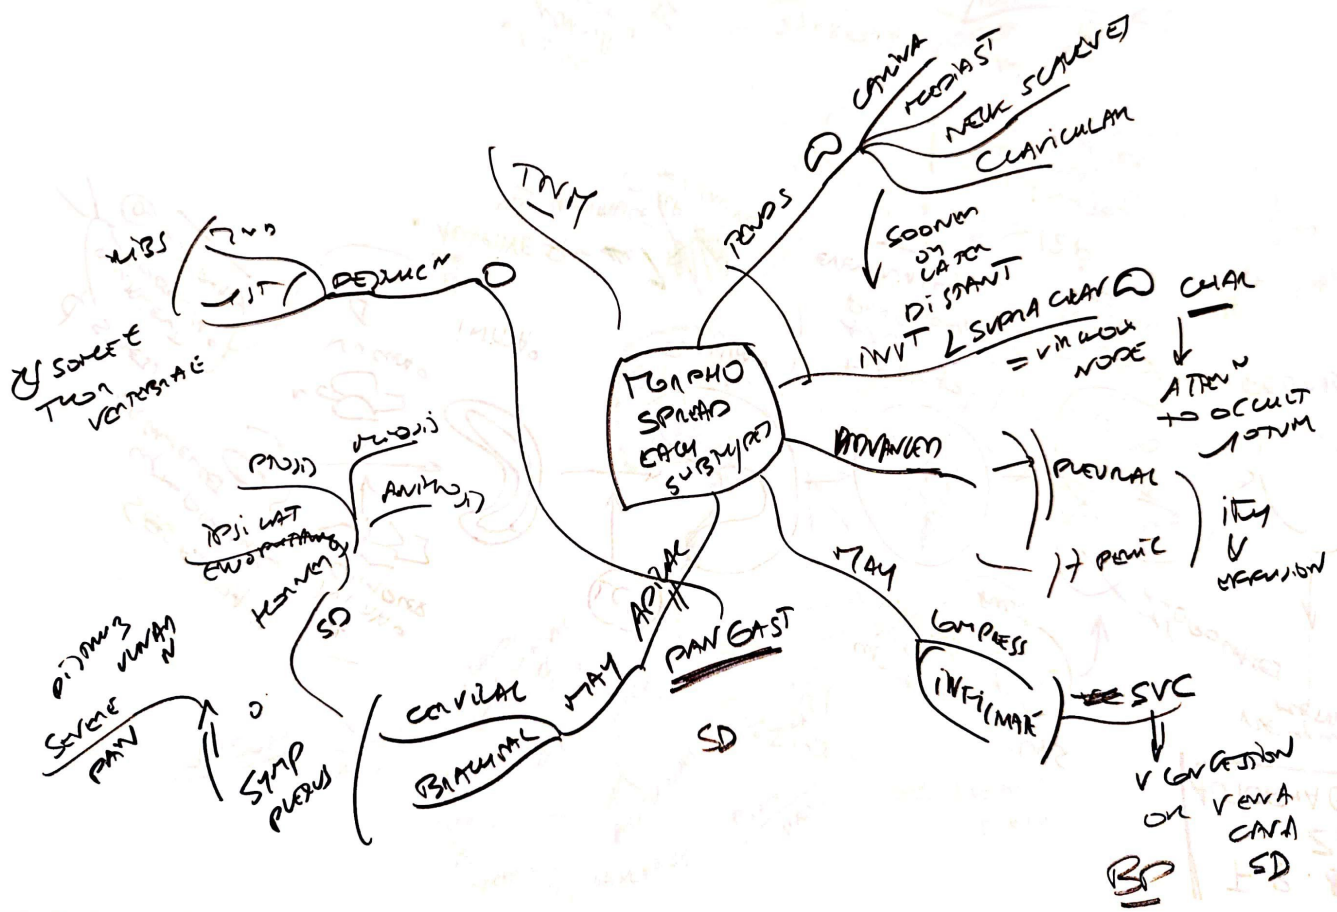 MORPHO
SPREAD
EACH
SUBTYPES
TNM
TENDS
CARINA
MEDIAST
NECK SCALENE
CLAVICULAR
SOONER
OR
LATER
DISTANT
INVT
SUPRA CLAV
= VIRCHOW
NODE
CHAR
ATTEN
TO OCCULT
ADVANCED
PLEURAL
EFFUSION
MAY
COMPRESS
INFILTRATE
SVC
V CONGESTION
OR VENA
CAVA
SD
BP
APICAL
MAY
CERVICAL
BRACHIAL
SYMP
PLEXUS
SEVERE
PAIN
SD
HORNER
IPSILAT
ENOPHTHAL
PTOSIS
MIOSIS
ANIDROSIS
PANCOAST
SD
RIBS
2ND
1ST
SOMETE
THOR
VERTEBRAE